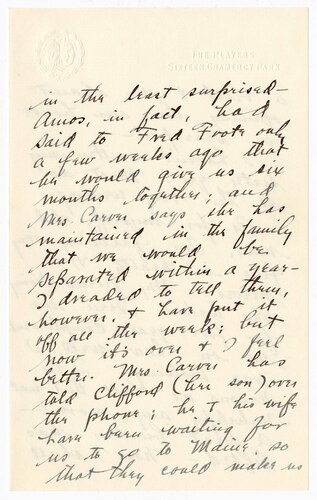 THE PLAYERS
SIXTEEN GRAMERCY PARK
in the least surprised—
Amos, in fact, had
said to Fred Foote only
a few weeks ago that
he would give us six
months together; and
Mrs. Carver says she has
maintained in the family
that we would be
separated within a year—
I dreaded to tell them,
however, & have put it
off all the week; but
now it's over & I feel
better. Mrs. Carver has
told Clifford (her son) over
the phone; he & his wife
have been waiting for
us to go to Maine, so
that they could make us